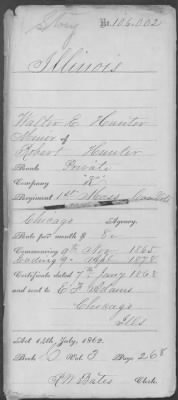 No. 106.002
Illinois
Walter E. Hunter
Minor of
Robert Hunter
Rank Private
Company "K"
Regiment 1st
Chicago Agency.
Rate per month $ 8.
Commencing 9th Nov 1865
Ending 9. 1878
Certificate dated 7th Jany 1868
and sent to E. F. Adams
Chicago
Ills
Act 14th July, 1862.
Book D Vol. 3 Page 268
R W Bates Clerk.